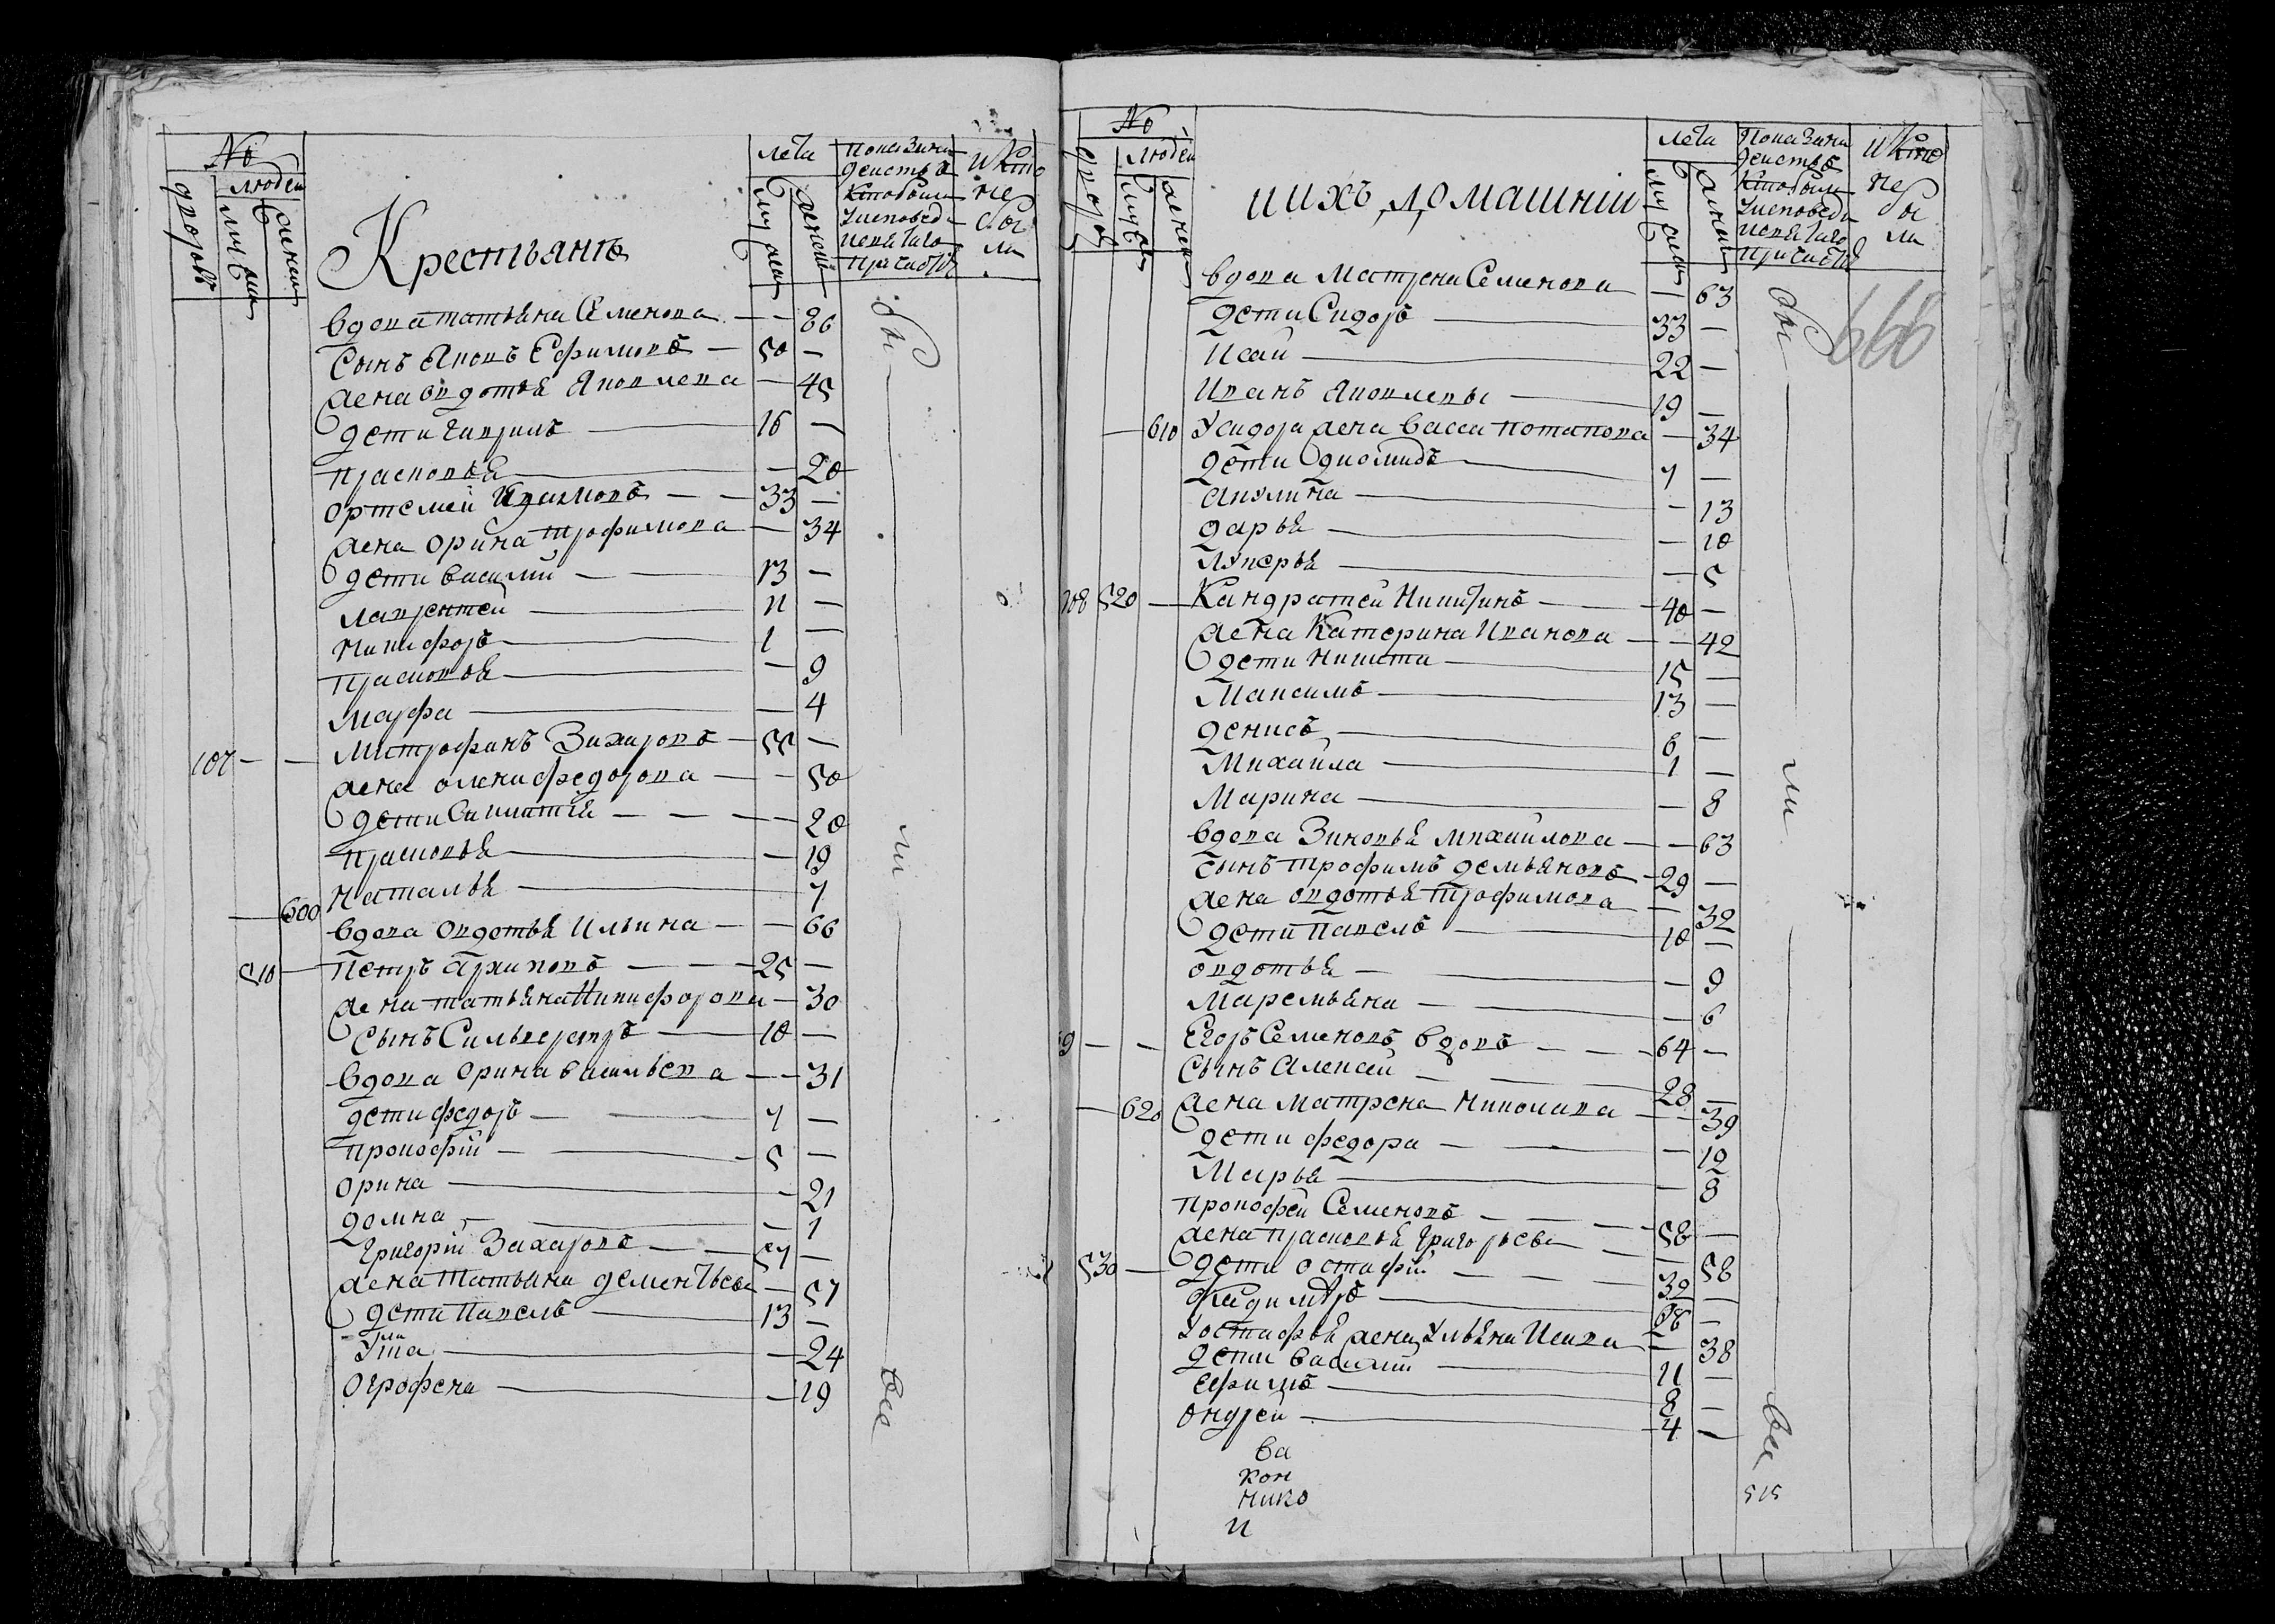 №
людей
дворовъ
мужеска
женска
Крестьяне
лета
мужеска
женска
показани
действъ
кто были
у исповеди
и святаго
причастия
и кто
не
бы
ли
вдова татьяна Семенова — — 86
Сынъ Яковъ Ефимовъ — 50 —
жена овдотья Яковлева — 45
дети Гаврилъ — 16 —
прасковья — 20
ортемей Ивановъ — — 33 —
жена орина трофимова — 34
дети василий — 13 —
лаврентей — 11 —
никифоръ — 1 —
прасковья — 9
марфа — 4
107 — — Митрофанъ Захаровъ — 55 —
жена олена федорова — — 50
дети Сиклитья — — — 20
прасковья — 19
— 600 наталья — 7
вдова овдотья Ильина — — 66
510 — петръ архиповъ — — 25 —
жена татьяна Никифорова — 30
Сынъ Сильвестръ — 10 —
вдова орина васильева — — 31
дети федоръ — 7 —
прокофий — 5 —
орина — 21
домна — 1
Григорий Захаровъ — — 57 —
жена татьяна дементьева — 57
дети павелъ — 13 —
— 24
Огрофена — 19
бы
ли
все
№
людей
дворовъ
мужеска
женска
и ихъ домашнии
лета
мужеска
женска
показани
действъ
кто были
у исповеди
и святаго
причастия
и кто
не
бы
ли
668
вдова Матрена Семенова — 63
дети Сидоръ — 33 —
Исай — 22 —
Иванъ Яковлевы — 19 —
— 610 У сидора жена васса потапова — 34
дети диомидъ — 7 —
акулина — 13
дарья — 10
лукерья — 5
108 520 — Кандратей Никитинъ — 40 —
жена Катерина Иванова — 42
дети Никита — 15 —
Максимъ — 13 —
денисъ — 6 —
Михаила — 1 —
Марина — 8
вдова Зиновья михайлова — — 63
сынъ трофимъ демьяновъ — 29 —
жена овдотья трофимова — 32
дети павелъ — 10 —
овдотья — 9
Маремьяна — 6
9 — — Егоръ Семеновъ вдовъ — — 64 —
Сынъ Алексей — 28 —
— 620 жена матрена николаева — 39
дети федора — 12
Марья — 8
прокофей Семеновъ — — 58 —
жена прасковья григорьева — 58
530 — дети остафий — — 39 —
—
У остафья жена ульяна Исаева — 38
дети василий — 11 —
ефимъ — 8 —
ондрей — 4 —
бы
ли
все
ва
кон
нико
и
515